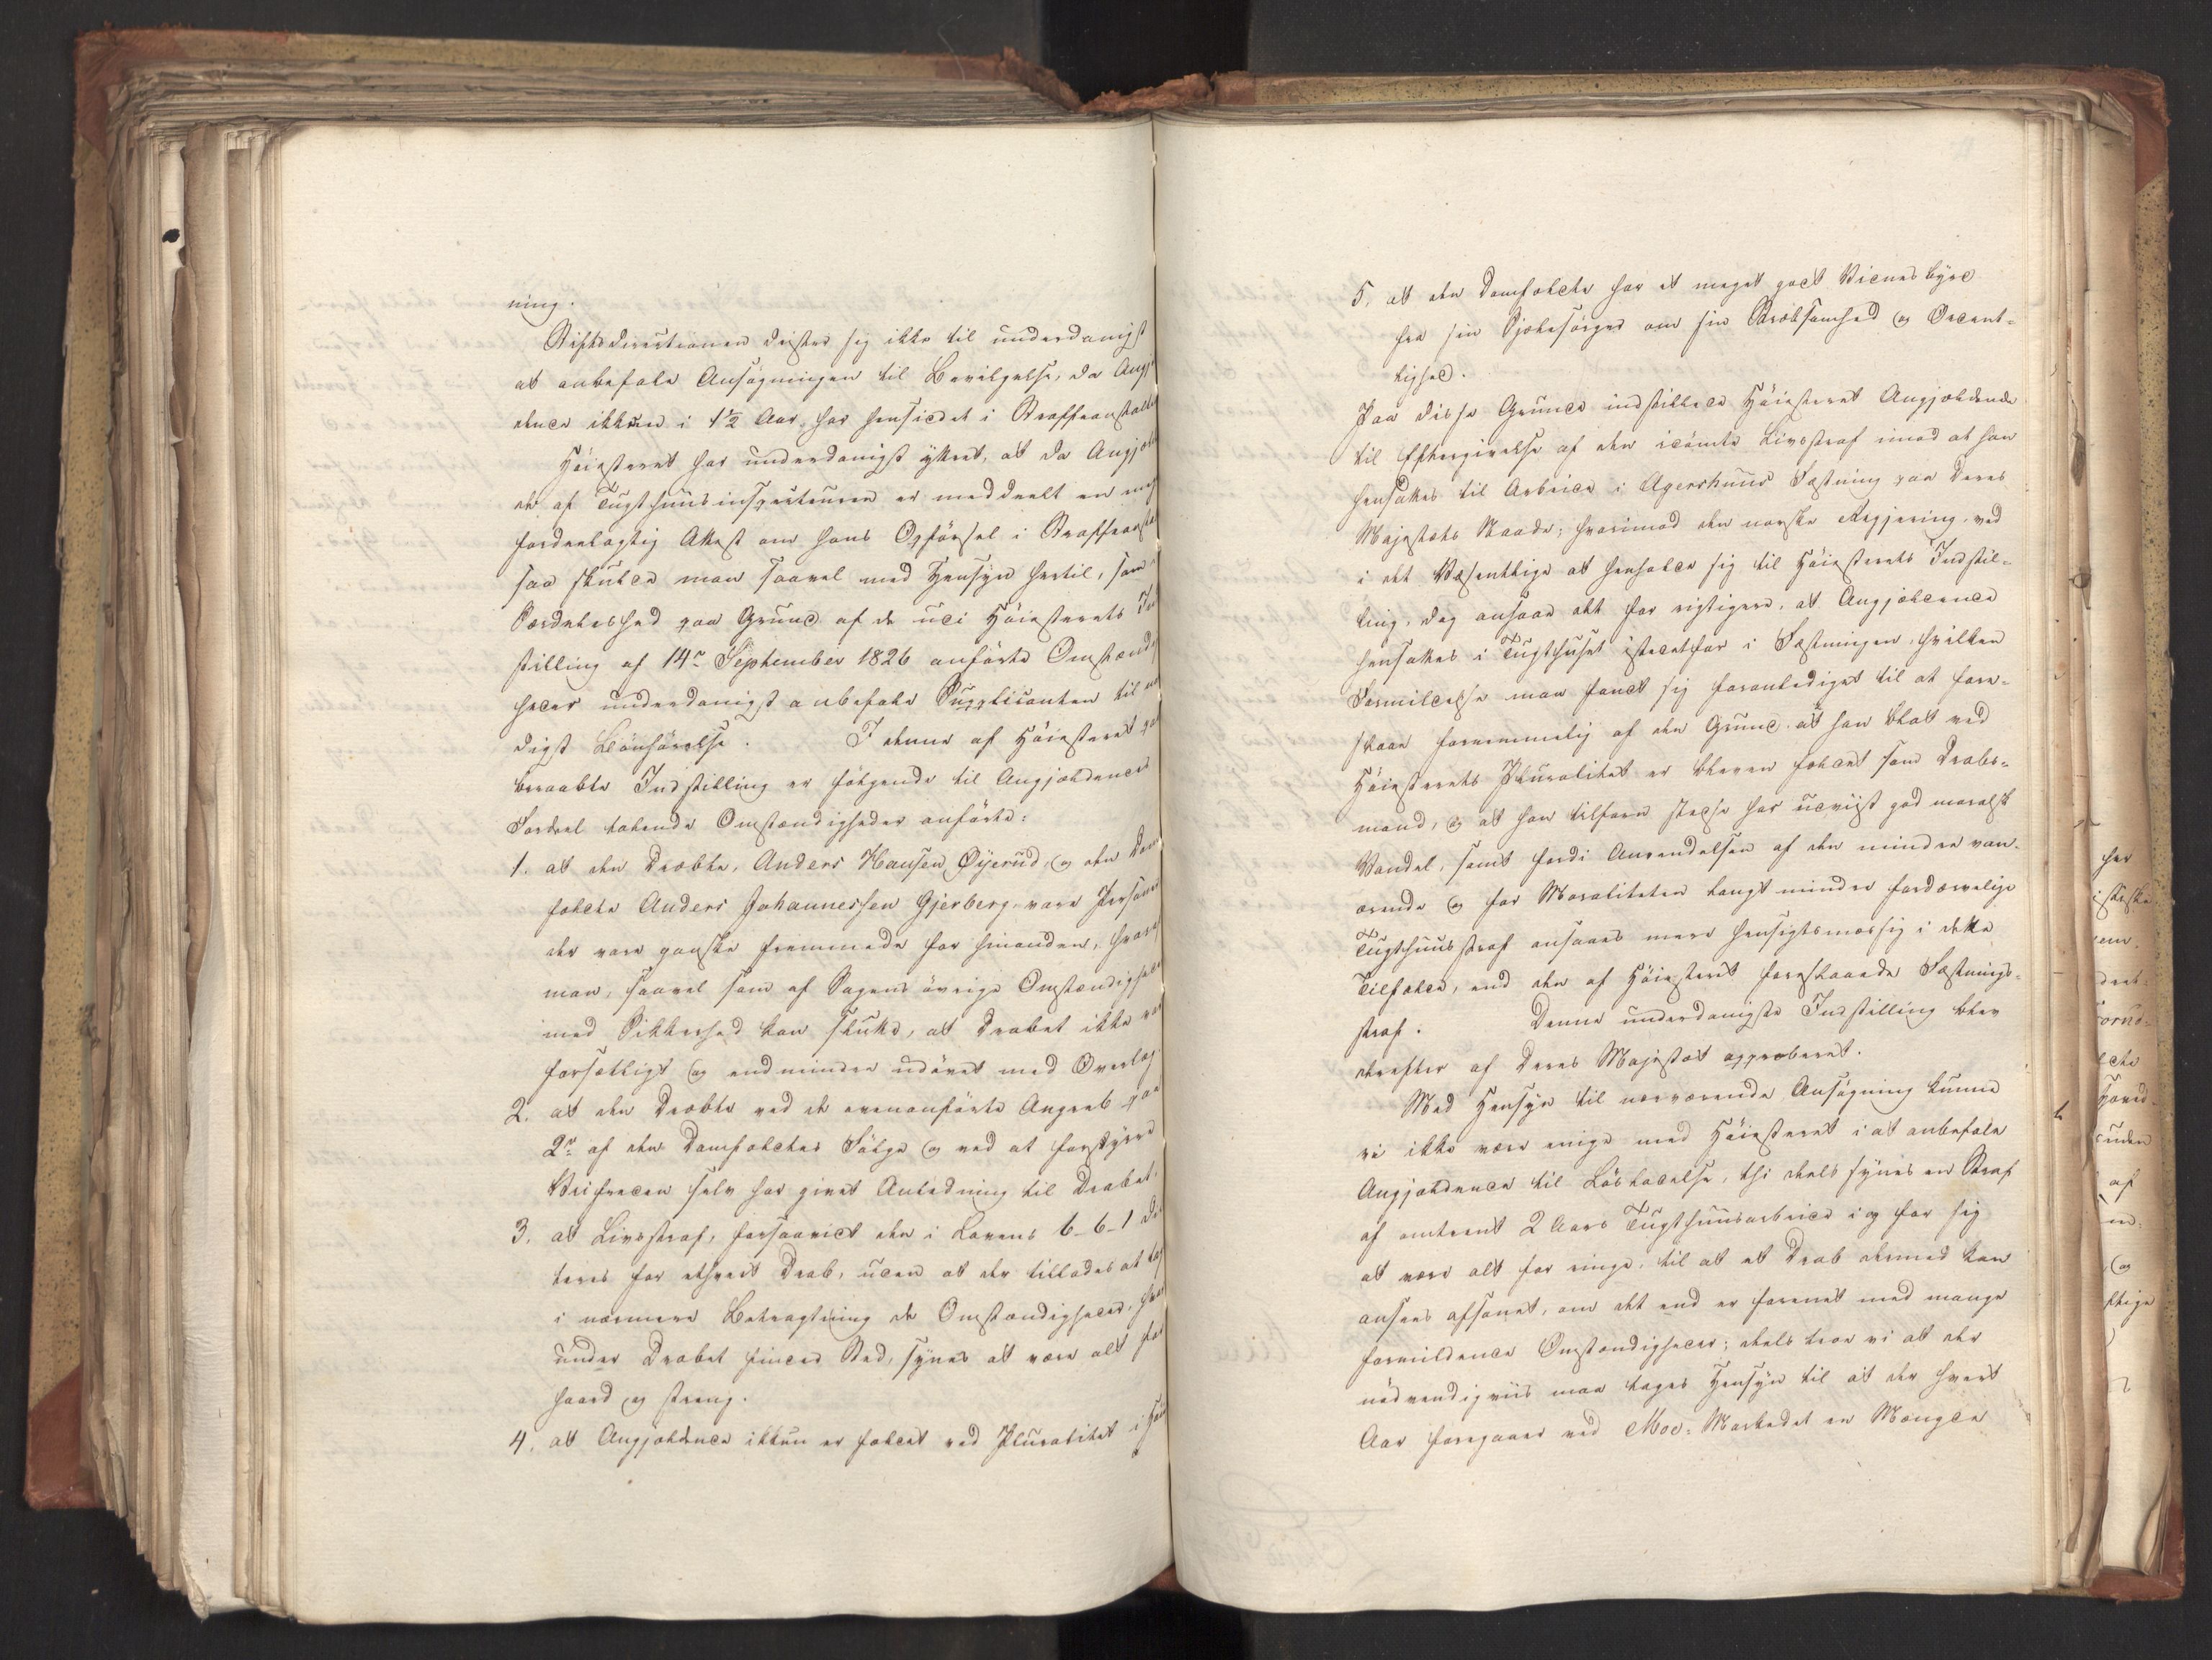 ning.
Stiftsdirectionen drister sig ikke til underdanigst
at anbefale Ansøgningen til Bevilgelse, da Angj
dende ikkun i 1½ Aar har hensiddet i Straffeanstalten
Høiesteret har underdanigst yttret, at da Angjæl
de af Tugthuusinspecteuren er meddeelt en meg
fordeelagtig Attest om hans Opførsel i Straffeansta
saa skulde man saavel med Hensyn hertil, som
Særdeleshed paa Grund af de udi Høiesterets In
stilling af 14de September 1826 anførte Omstændig
heder underdanigst anbefale Supplicanten til
digst Bønhørelse. I denne af Høiesteret paa
beraabte Indstilling er følgende til Angjældendes
Fordeel talende Omstændigheder anførte:
1. at den Dræbte, Anders Hansen Øyerud, og den Dom
fældte Anders Johannessen Gjerberg vare Personer
der vare ganske fremmede for hinanden, hvoraf
man, saavel som af Sagens øvrige Omstændighed
med Sikkerhed kan slutte, at Drabet ikke var
forsætligt og endmindre udøvet med Overlæg
2. at den Dræbte ved de ovenanførte Angreb paa
2de af den Domfældtes Følge og ved at forstyrre
Veifreden selv har givet Anledning til Drabet.
3. at Livsstraf, forsaavidt den i Lovens 6-6-1 dic
teres for ethvert Drab, uden at der tillades at tag
i nærmere Betragtning de Omstændigheder, hvor
under Drabet finder Sted, synes at være alt for
haard og streng.
4. at Angjældende ikkun er fældet ved Pluralitet i Høi
5. at den Domfældte har et meget godt Vidnesbyrd
fra sin Sjælesørger om sin Stræbsomhed og Ordent-
lighed.
Paa disse Grunde indstillede Høiesteret Angjældende
til Eftergivelse af den idømte Livsstraf imod at han
hensattes til Arbeide i Agershuus Fæstning paa Deres
Majestæts Naade; hvorimod den norske Regjering, ved
i det Væsentlige at henholde sig til Høiesterets Indstil-
ling, dog ansaae det for rigtigere, at Angjældende
hensattes i Tugthuset istedetfor i Fæstningen, hvilken
Formildelse man fandt sig foranlediget til at fore-
slaae fornemmelig af den Grund at han blot ved
Høiesterets Pluralitet er bleven fældet som Drabs-
mand, og at han tilforn stedse har udviist god moralsk
Vandel, samt fordi Anvendelsen af den mindre van-
ærende og for Moraliteten langt mindre fordærvelige
Tugthuusstraf ansaaes mere hensigtsmæssig i dette
Tilfælde, end den af Høiesteret foreslaaede Fæstnings-
straf. Denne underdanigste Indstilling blev
derefter af Deres Majestæt approberet.
Med Hensyn til nærværende Ansøgning kunne
vi ikke være enige med Høiesteret i at anbefale
Angjældende til Løsladelse, thi deels synes en Straf
af omtrent 2 Aars Tugthuusarbeide i og for sig
at være alt for ringe, til at et Drab dermed kan
ansees afsonet, om det end er forenet med mange
formildende Omstændigheder; deels troe vi at der
nødvendigviis maa tages Hensyn til at der hvert
Aar foregaaer ved Moe-Markedet en Mængde